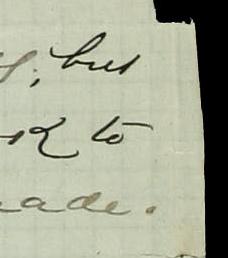 ; but
k to
ade.